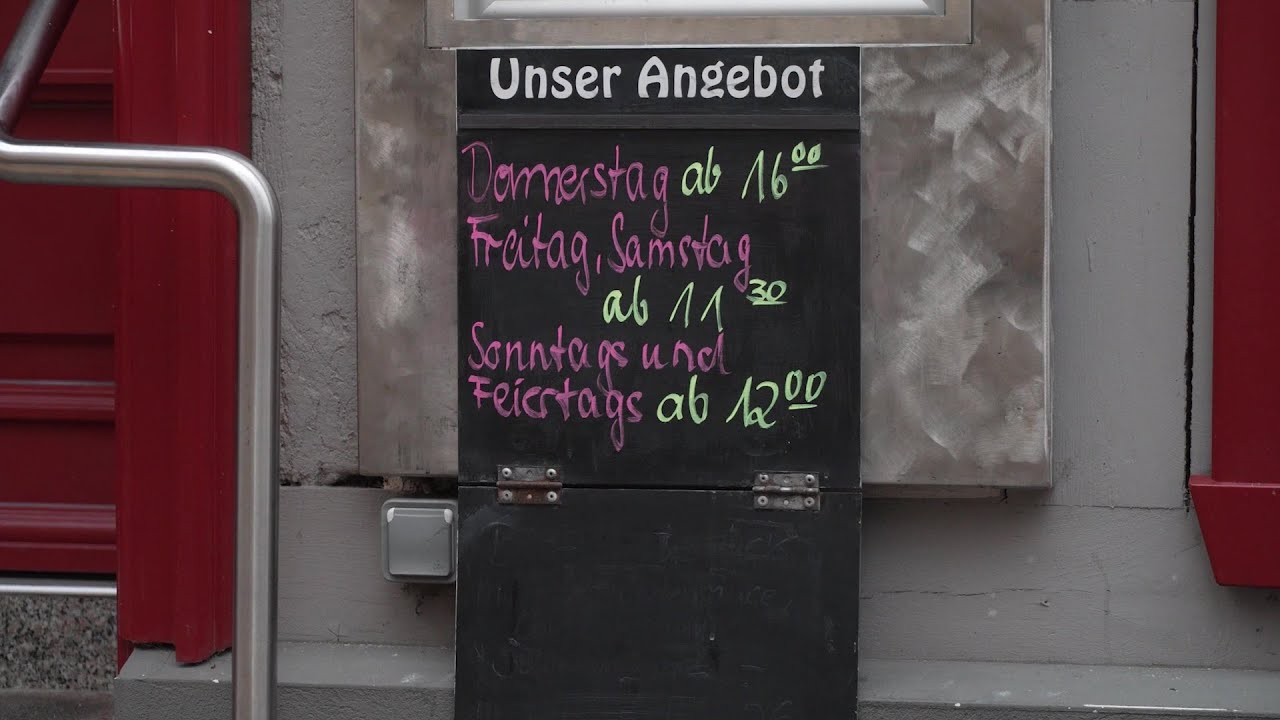 Unser Angebot
Donnerstag ab 16⁰⁰
Freitag, Samstag
ab 11³⁰
Sonntags und
Feierstags ab 12⁰⁰